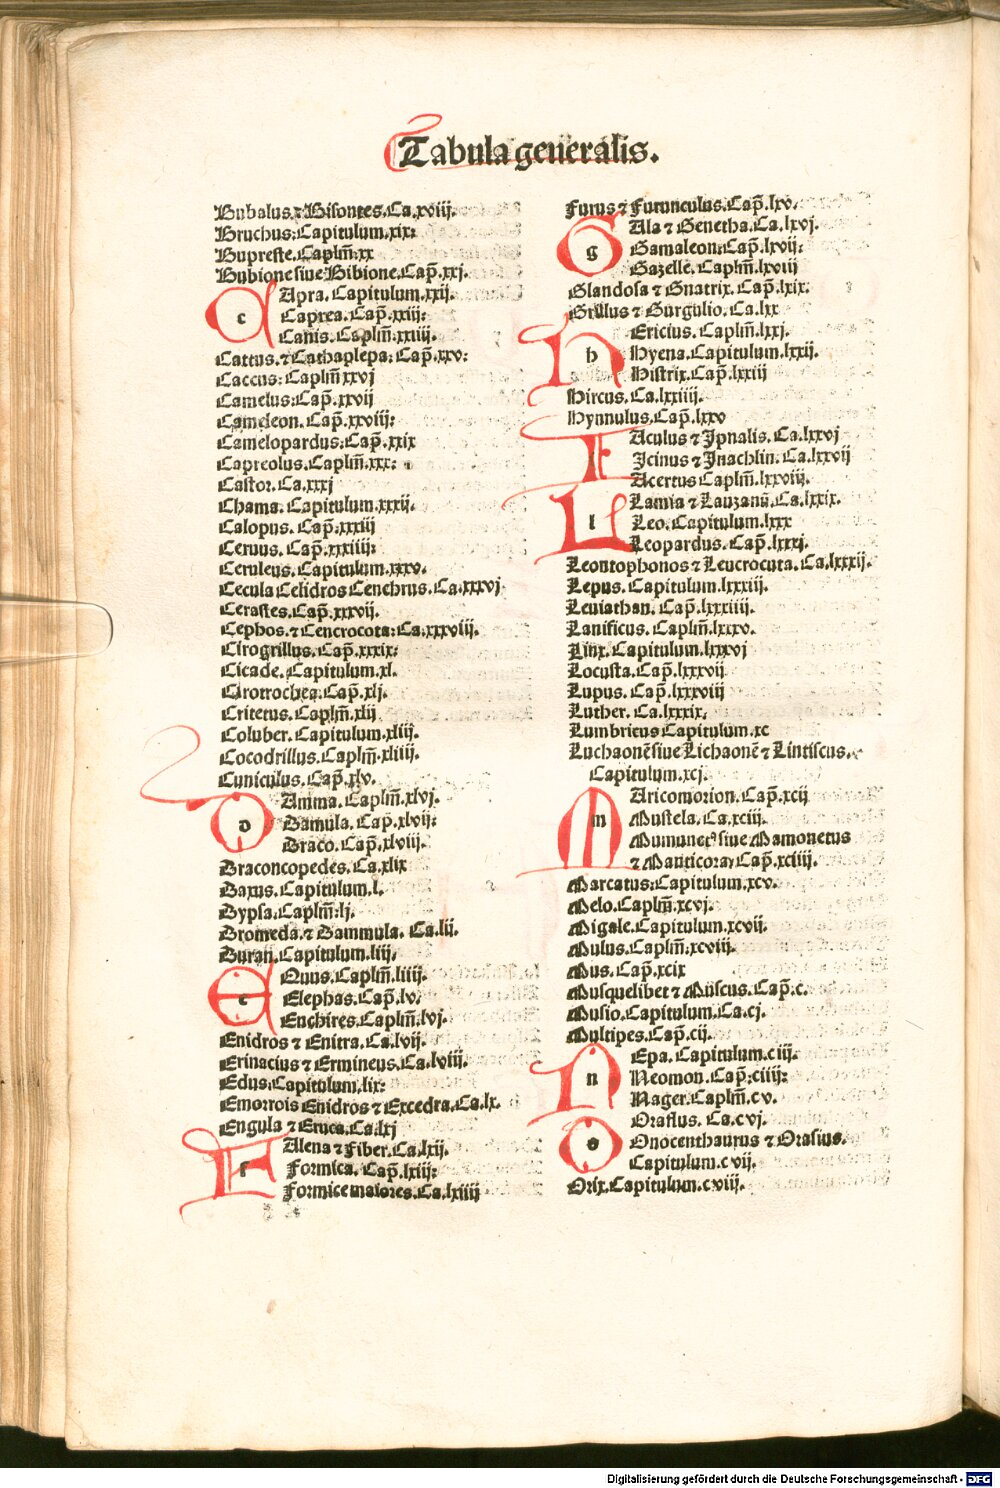 Tabula generalis.
Bubalus ⁊ Bisontes. Ca. xviij.
Bruchus: Capitulum. xix:
Bupreste. Caplm̄. xx
Bubione siue Bibione. Cap̄. xxj.
c Apra. Capitulum. xxij.
Caprea. Cap̄. xxiij:
Canis. Caplm̄. xxiiij.
Cattus. ⁊ Cathaplepa: Cap̄. xxv:
Caccus: Caplm̄ xxvj
Camelus: Cap̄. xxvij
Cameleon. Cap̄. xxviij:
Camelopardus: Cap̄. xxix
Capreolus. Caplm̄. xxx:
Castor. Ca. xxxj
Chama. Capitulum. xxxij.
Calopus. Cap̄. xxxiij
Ceruus. Cap̄. xxxiiij:
Ceruleus. Capitulum. xxxv.
Cecula Celidros Cenchrus. Ca. xxxvj
Cerastes. Cap̄. xxxvij.
Cephos. ⁊ Cencrocota: Ca: xxxviij.
Cirogrillus. Cap̄. xxxix:
Cicade. Capitulum. xl.
Cirotrochea. Cap̄. xlj.
Critetus. Caplm̄. xlij
Coluber. Capitulum. xliij.
Cocodrillus. Caplm̄. xliiij.
Cuniculus. Cap̄. xlv.
d Amma. Caplm̄. xlvj.
Damula. Cap̄. xlvij:
Draco. Cap̄. xlviij.
Draconcopedes. Ca. xlix
Daxus. Capitulum. l.
Dypsa. Caplm̄: lj.
Dromeda. ⁊ Dammula. Ca. lij.
Duran. Capitulum. liij.
e Quus. Caplm̄. liiij.
Elephas. Cap̄. lv.
Enchires. Caplm̄. lvj.
Enidros ⁊ Enitra. Ca. lvij.
Erinacius ⁊ Ermineus. Ca. lviij.
Edus. Capitulum. lix:
Emorrois Enidros ⁊ Excedra. Ca. lx.
Engula ⁊ Eruca. Ca. lxj
f Alena ⁊ Fiber. Ca. lxij.
Formica. Cap̄. lxiij:
Formice maiores. Ca. lxiiij
Furus ⁊ Furunculus. Cap̄. lxv.
g Ala ⁊ Genetha. Ca. lxvj.
Gamaleon: Cap̄. lxvij:
Gazelle. Caplm̄. lxviij
Glandosa ⁊ Gnatrix. Cap̄. lxix:
Grillus ⁊ Gurgulio. Ca. lxx
h Ericius. Caplm̄. lxxj.
Hyena. Capitulum. lxxij.
Histrix. Cap̄. lxxiij
Hircus. Ca. lxxiiij.
Hynnulus. Cap̄. lxxv
I Aculus ⁊ Ipnalis. Ca. lxxvj
Icinus ⁊ Inachlin. Ca. lxxvij
l Acertus Caplm̄. lxxviij.
Lamia ⁊ Lauzanū. Ca. lxxix.
Leo. Capitulum. lxxx
Leopardus. Cap̄. lxxxj.
Leontophonos ⁊ Leucrocuta. Ca. lxxxij.
Lepus. Capitulum. lxxxiij.
Leuiathan. Cap̄. lxxxiiij.
Lanificus. Caplm̄. lxxxv.
Linx. Capitulum. lxxxvj
Locusta. Cap̄. lxxxvij
Lupus. Cap̄. lxxxviij
Luther. Ca. lxxxix.
Lumbricus Capitulum. xc
Luchaonē siue Lichaonē ⁊ Lintiscus.
Capitulum. xcj.
m Aricomorion. Cap̄. xcij
Mustela. Ca. xciij.
Mumunetꝰ siue Mamonetus
⁊ Manticora. Cap̄. xciiij.
Marcatus: Capitulum. xcv.
Melo. Caplm̄. xcvj.
Migale. Capitulum. xcvij.
Mulus. Caplm̄. xcviij.
Mus. Cap̄. xcix
Musquelibet ⁊ Muscus. Cap̄. c.
Musio. Capitulum. Ca. cj.
Multipes. Cap̄. cij.
n Epa. Capitulum. c iij.
Neomon. Cap̄: ciiij:
Nager. Caplm̄. c v.
o Oraflus. Ca. c vj.
Onocenthaurus ⁊ Orasius.
Capitulum. c vij.
Orix. Capitulum. c viij.
Digitalisierung gefördert durch die Deutsche Forschungsgemeinschaft - DFG